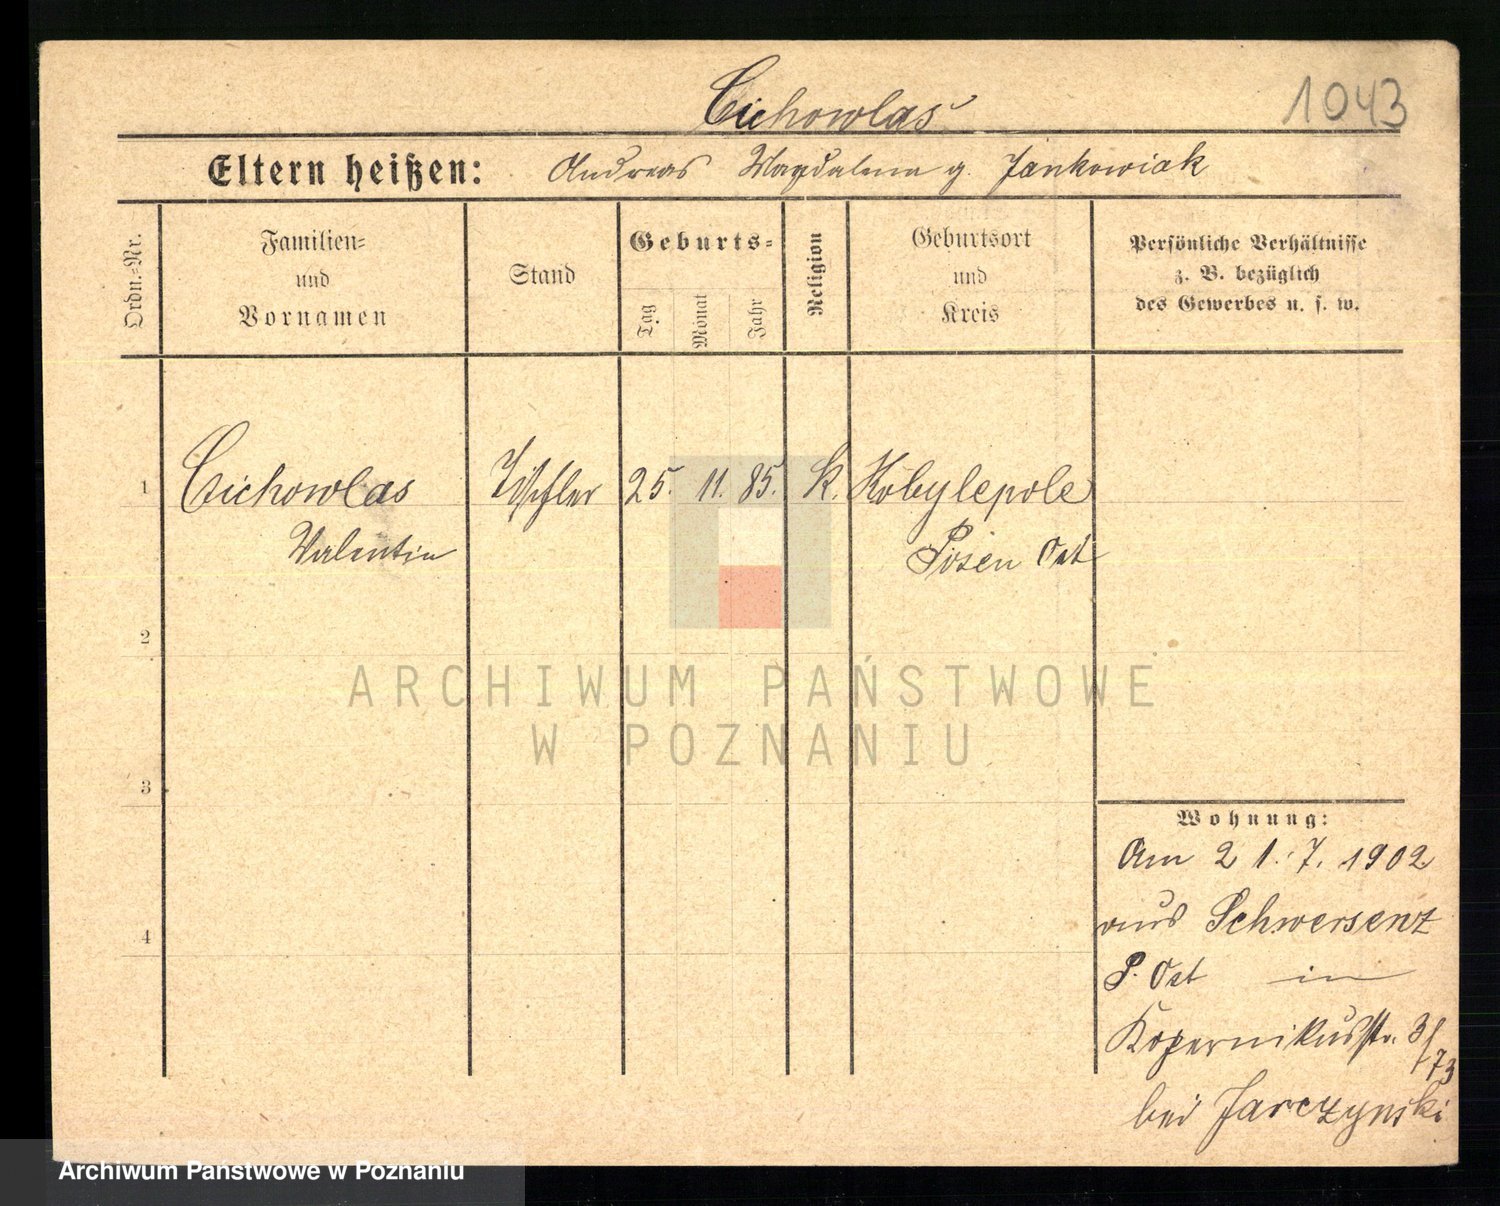 Cichowlas 1043
Eltern heißen: Andreas Magdalena g. Jankowiak
Ordn.-Nr.
Familien-
und
Vornamen
Stand
Geburts-
Tag
Monat
Jahr
Religion
Geburtsort
und
Kreis
Persönliche Verhältnisse
z. B. bezüglich
des Gewerbes u. s. w.
1 Cichowlas Tischler 25. 11. 85. k. Kobylepole
Valentin Posen Ost
2
ARCHIWUM PAŃSTWOWE
W POZNANIU
3
Wohnung:
Am 21.7.1902
aus Schwersenz
4
P. Ost in
Kopernikusstr. 3/73
bei Jarczynski
Archiwum Państwowe w Poznaniu